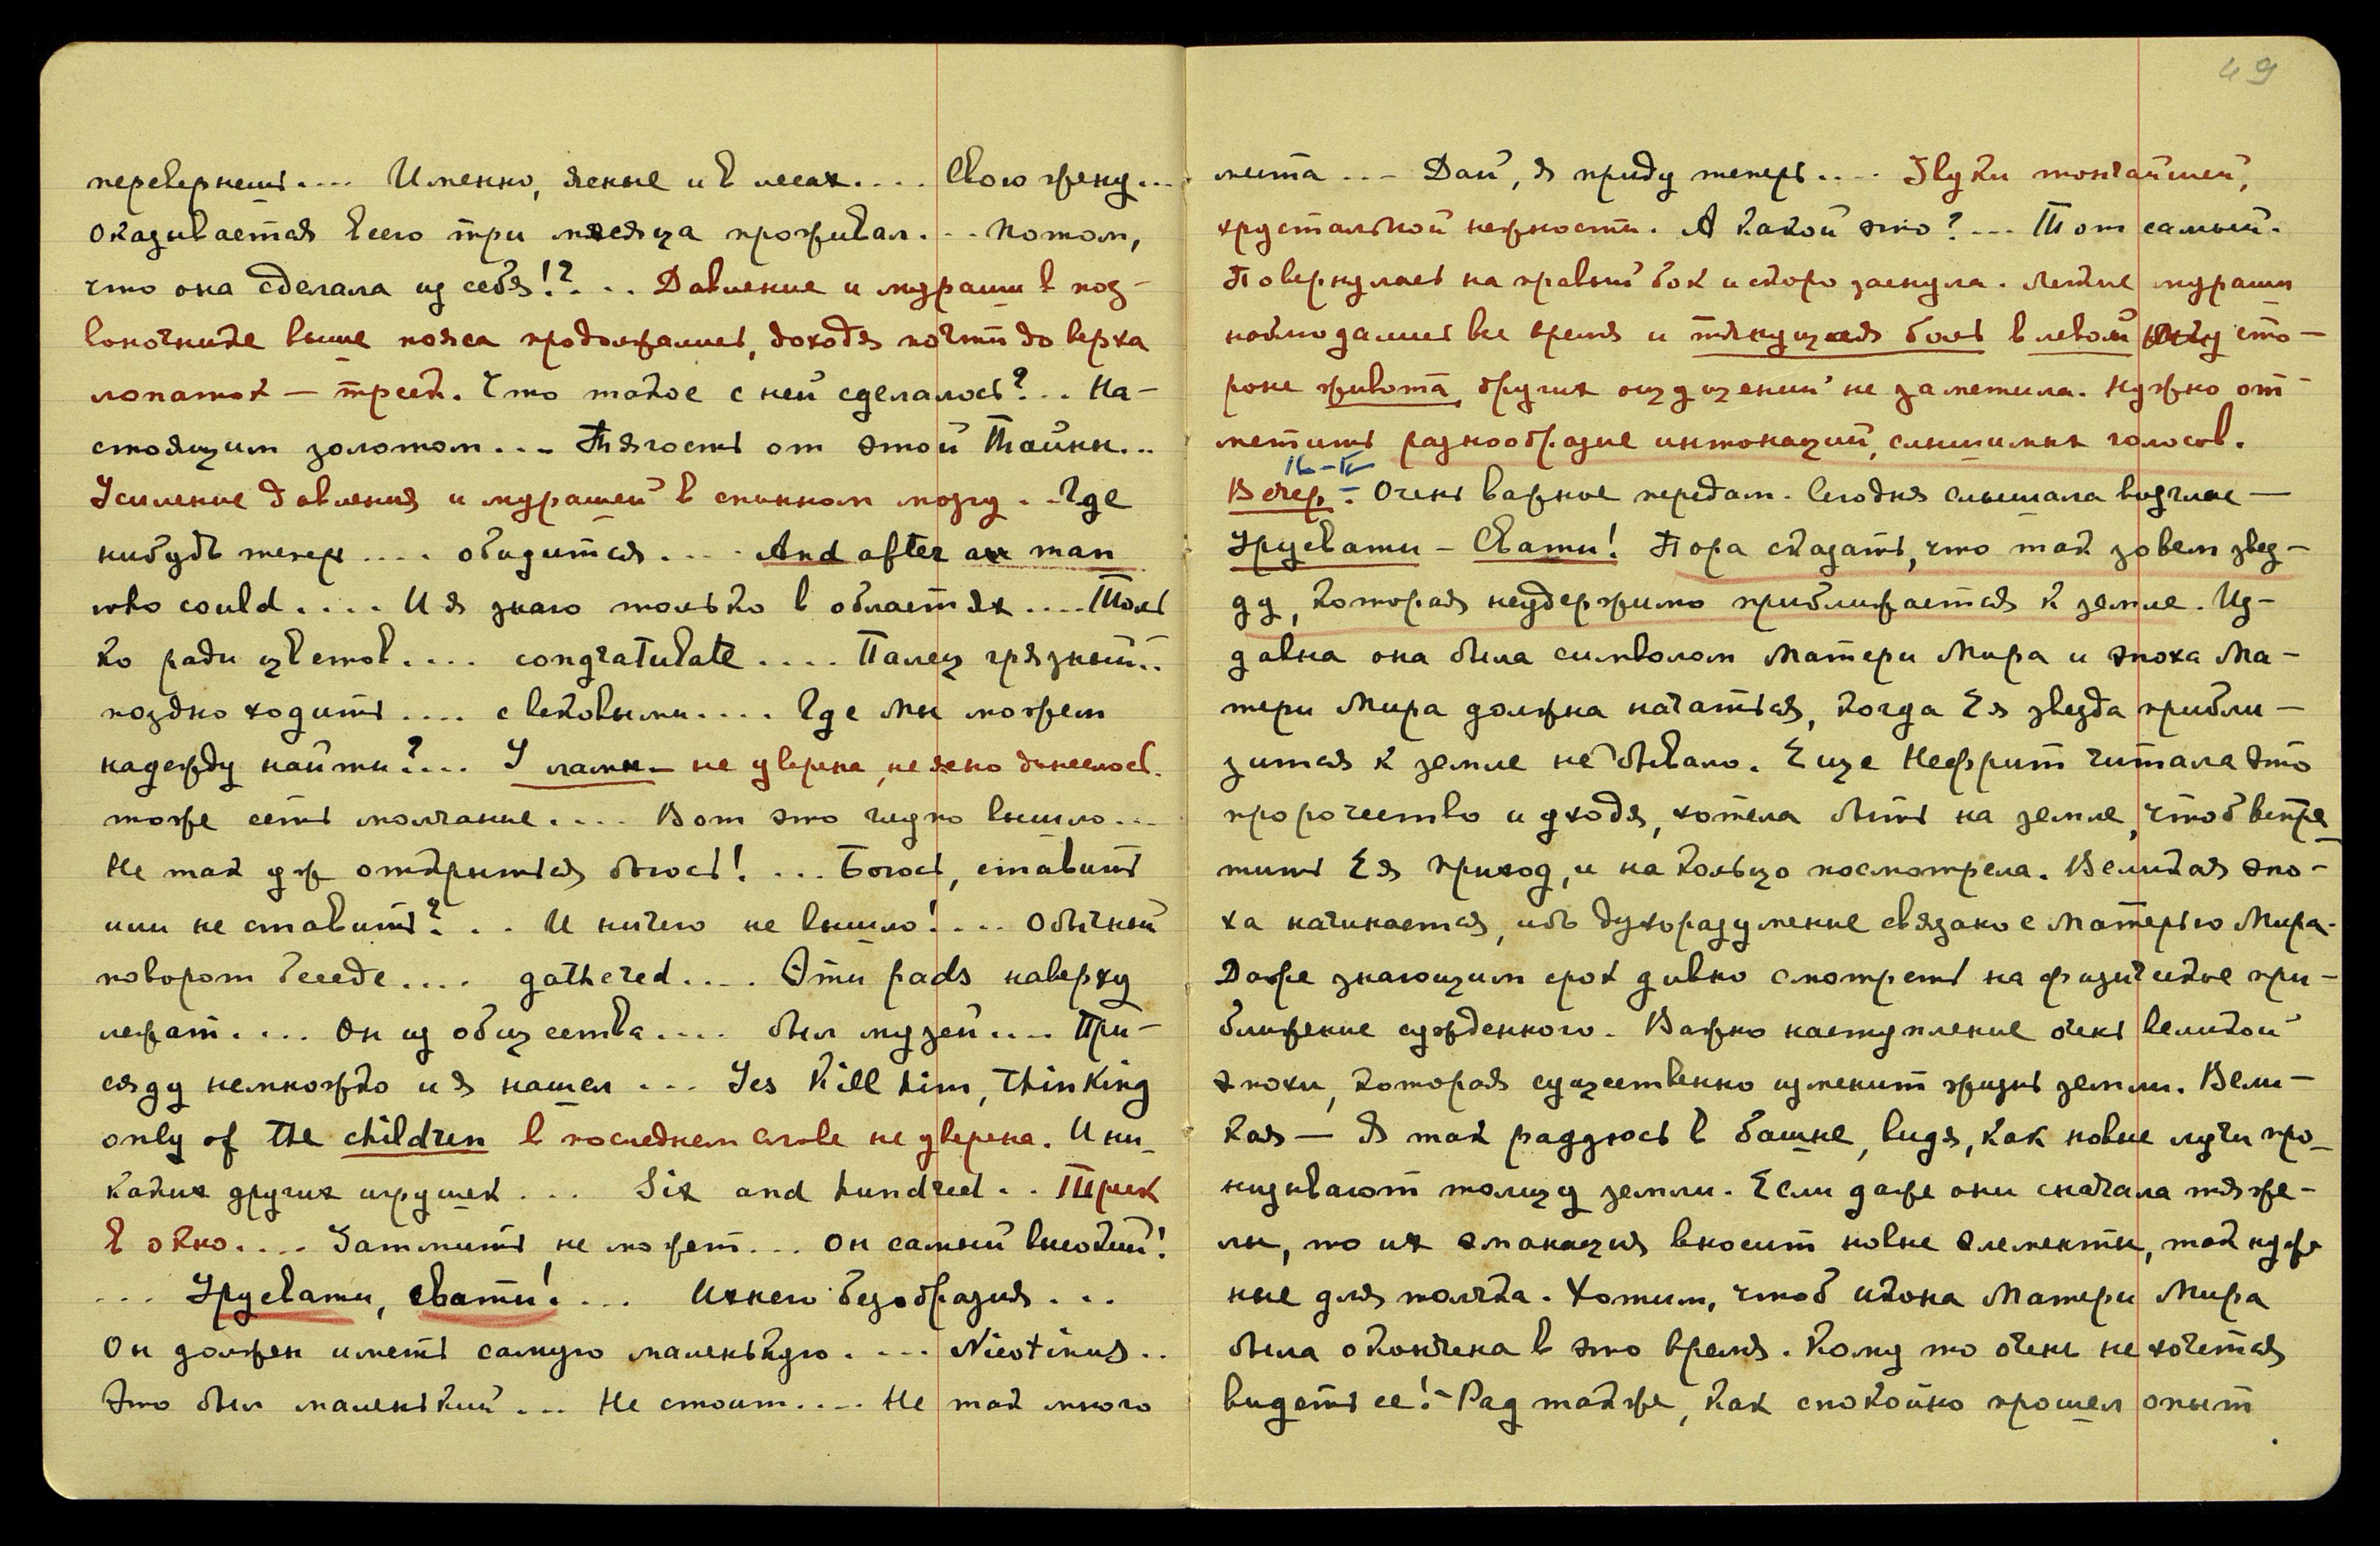 перевернешь.... Именно, ясные и в лесах.... Свою жену...
оказывается всего три месяца проживал... Потом,
что она сделала из себя!?... Давление и мураши в поз-
воночнике выше пояса продолжались, доходя почти до верха
лопаток — треск. Что такое с ней сделалось?.. На-
стоящим золотом... Тягость от этой Тайны...
Усиление давления и мурашей в спинном мозгу.. Где
нибудь теперь.... обидится.... And after a man
who could.... И я знаю только в областях.... Толь
ко ради цветов.... congratulate.... Палец грязный..
поздно ходить.... с вековыми.... Где мы можем
надежду найти?... У ламы — не уверена, не ясно донеслось.
тоже есть молчание.... Вот это чудно вышло...
Не так уж открыться боюсь!... Боюсь, ставить
или не ставить?... И ничего не вышло!... Обычный
поворот беседе.... gathered.... Эти pads наверху
лежат.... Он из общества.... был музей.... При-
сяду немножко и я нашел... Yes kill him, thinking
only of the children в последнем слове не уверена. И ни-
каких других игрушек... Six and hundred.. Трик
в окно.... Затмить не может... Он самый высокий!
... Урусвати, свати!... Ихнего безобразия...
Он должен иметь самую маленькую.... Nicotinus..
Это был маленький... Не стоит.... Не так много
49
мита... Дай, я приду теперь.... Звуки тончайшей,
хрустальной нежности. А какой это?... Тот самый.
Повернулась на правый бок и скоро заснула. Легкие мураши
наблюдались все время и тянущая боль в левой сто-
роне живота, других ощущений не заметила. Нужно от-
метить разнообразие интонаций, слышимых голосов.
Вечер. Очень важное передам. Сегодня слышала возглас —
Урусвати — Свати! Пора сказать, что так зовем звез-
ду, которая неудержимо приближается к земле. Из-
давна она была символом Матери Мира и эпоха Ма-
тери Мира должна начаться, когда Ея звезда прибли-
зится к земле небывало. Еще Нефрит читала это
пророчество и уходя, хотела быть на земле, чтоб встре-
тить Ея приход, и на кольцо посмотрела. Великая эпо-
ха начинается, ибо духоразумение связано с Матерью Мира.
Даже знающим срок дивно смотреть на физическое при-
ближение сужденного. Важно наступление очень великой
эпохи, которая существенно изменит жизнь земли. Вели-
кая — Я так радуюсь в башне, видя, как новые лучи про-
низывают толщу земли. Если даже они сначала тяже-
лы, то их эманация вносит новые элементы, так нуж
ные для толчка. Хотим, чтоб икона Матери Мира
была окончена в это время. Кому то очень не хочется
видеть ее! — Рад также, как спокойно прошел опыт